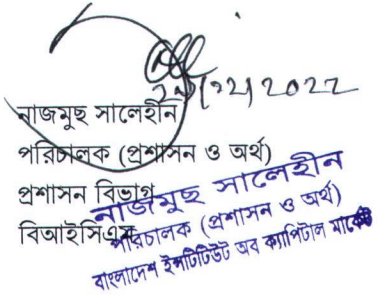 নাজমুছ সালেহীন
পরিচালক (প্রশাসন ও অর্থ)
প্রশাসন বিভাগ
বিআইসিএম
নাজমুছ সালেহীন
পরিচালক (প্রশাসন ও অর্থ)
বাংলাদেশ ইন্সটিটিউট অব ক্যাপিটাল মার্কেট